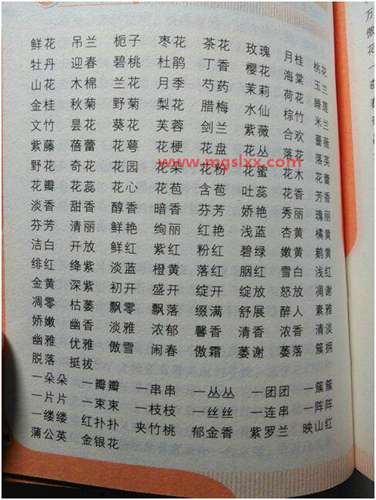 鲜花 吊兰 栀子 枣花 茶花 玫瑰 月桂 桃花
牡丹 迎春 碧桃 杜鹃 丁香 樱花 海棠 玉兰
山花 木棉 兰花 月季 芍药 茉莉 荷花 睡莲
金桂 秋菊 野菊 梨花 腊梅 水仙 棕竹 米兰
文竹 昙花 葵花 芙蓉 剑兰 紫薇 合欢 蔷薇
紫藤 蓓蕾 花萼 花梗 花盘 花丛 落花 落英
野花 奇花 花园 花朵 花粉 花蜜 花木 花香 芳香
花瓣 花蕊 花心 花苞 含苞 吐蕊
淡香 甜香 醇香 暗香 芬芳 娇艳 秀丽 瑰丽
芬芳 清丽 鲜艳 绚丽 红艳 浅蓝 杏黄 橘黄
洁白 开放 鲜红 紫红 粉红 碧绿 嫩黄 鹅黄
绯红 绛紫 淡蓝 橙黄 落红 胭红 雪白 浅红
金黄 深紫 初开 盛开 绽开 绽放 怒放 凋谢
凋零 枯萎 飘零 飘落 缀满 舒展 醉人 素雅
娇嫩 幽香 淡雅 浓郁 馨香 清香 浓香 清淡
幽雅 优雅 傲雪 闹春 傲霜 萎谢 萎落 簇拥
脱落 挺拔
一朵朵 一瓣瓣 一串串 一丛丛 一团团 一簇簇
一片片 一束束 一枝枝 一丝丝 一连串 一阵阵
一缕缕 红扑扑 夹竹桃 郁金香 紫罗兰 映山红
蒲公英 金银花
www.mgslxx.com